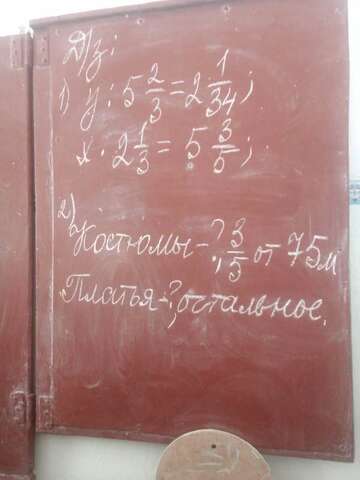 Д/з:
1) у : 5 2/3 = 2 1/34;
х · 2 1/3 = 5 3/5;
2)
Костюмы - ?, 3/5 от 75м
Платья - ?, остальное.